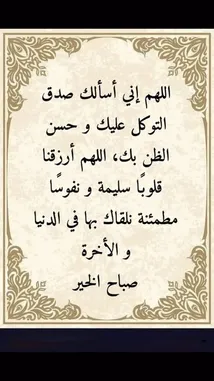 اللهم إني أسألك صدق
التوكل عليك و حسن
الظن بك، اللهم أرزقنا
قلوبًا سليمة و نفوسًا
مطمئنة نلقاك بها في الدنيا
و الأخرة
صباح الخير